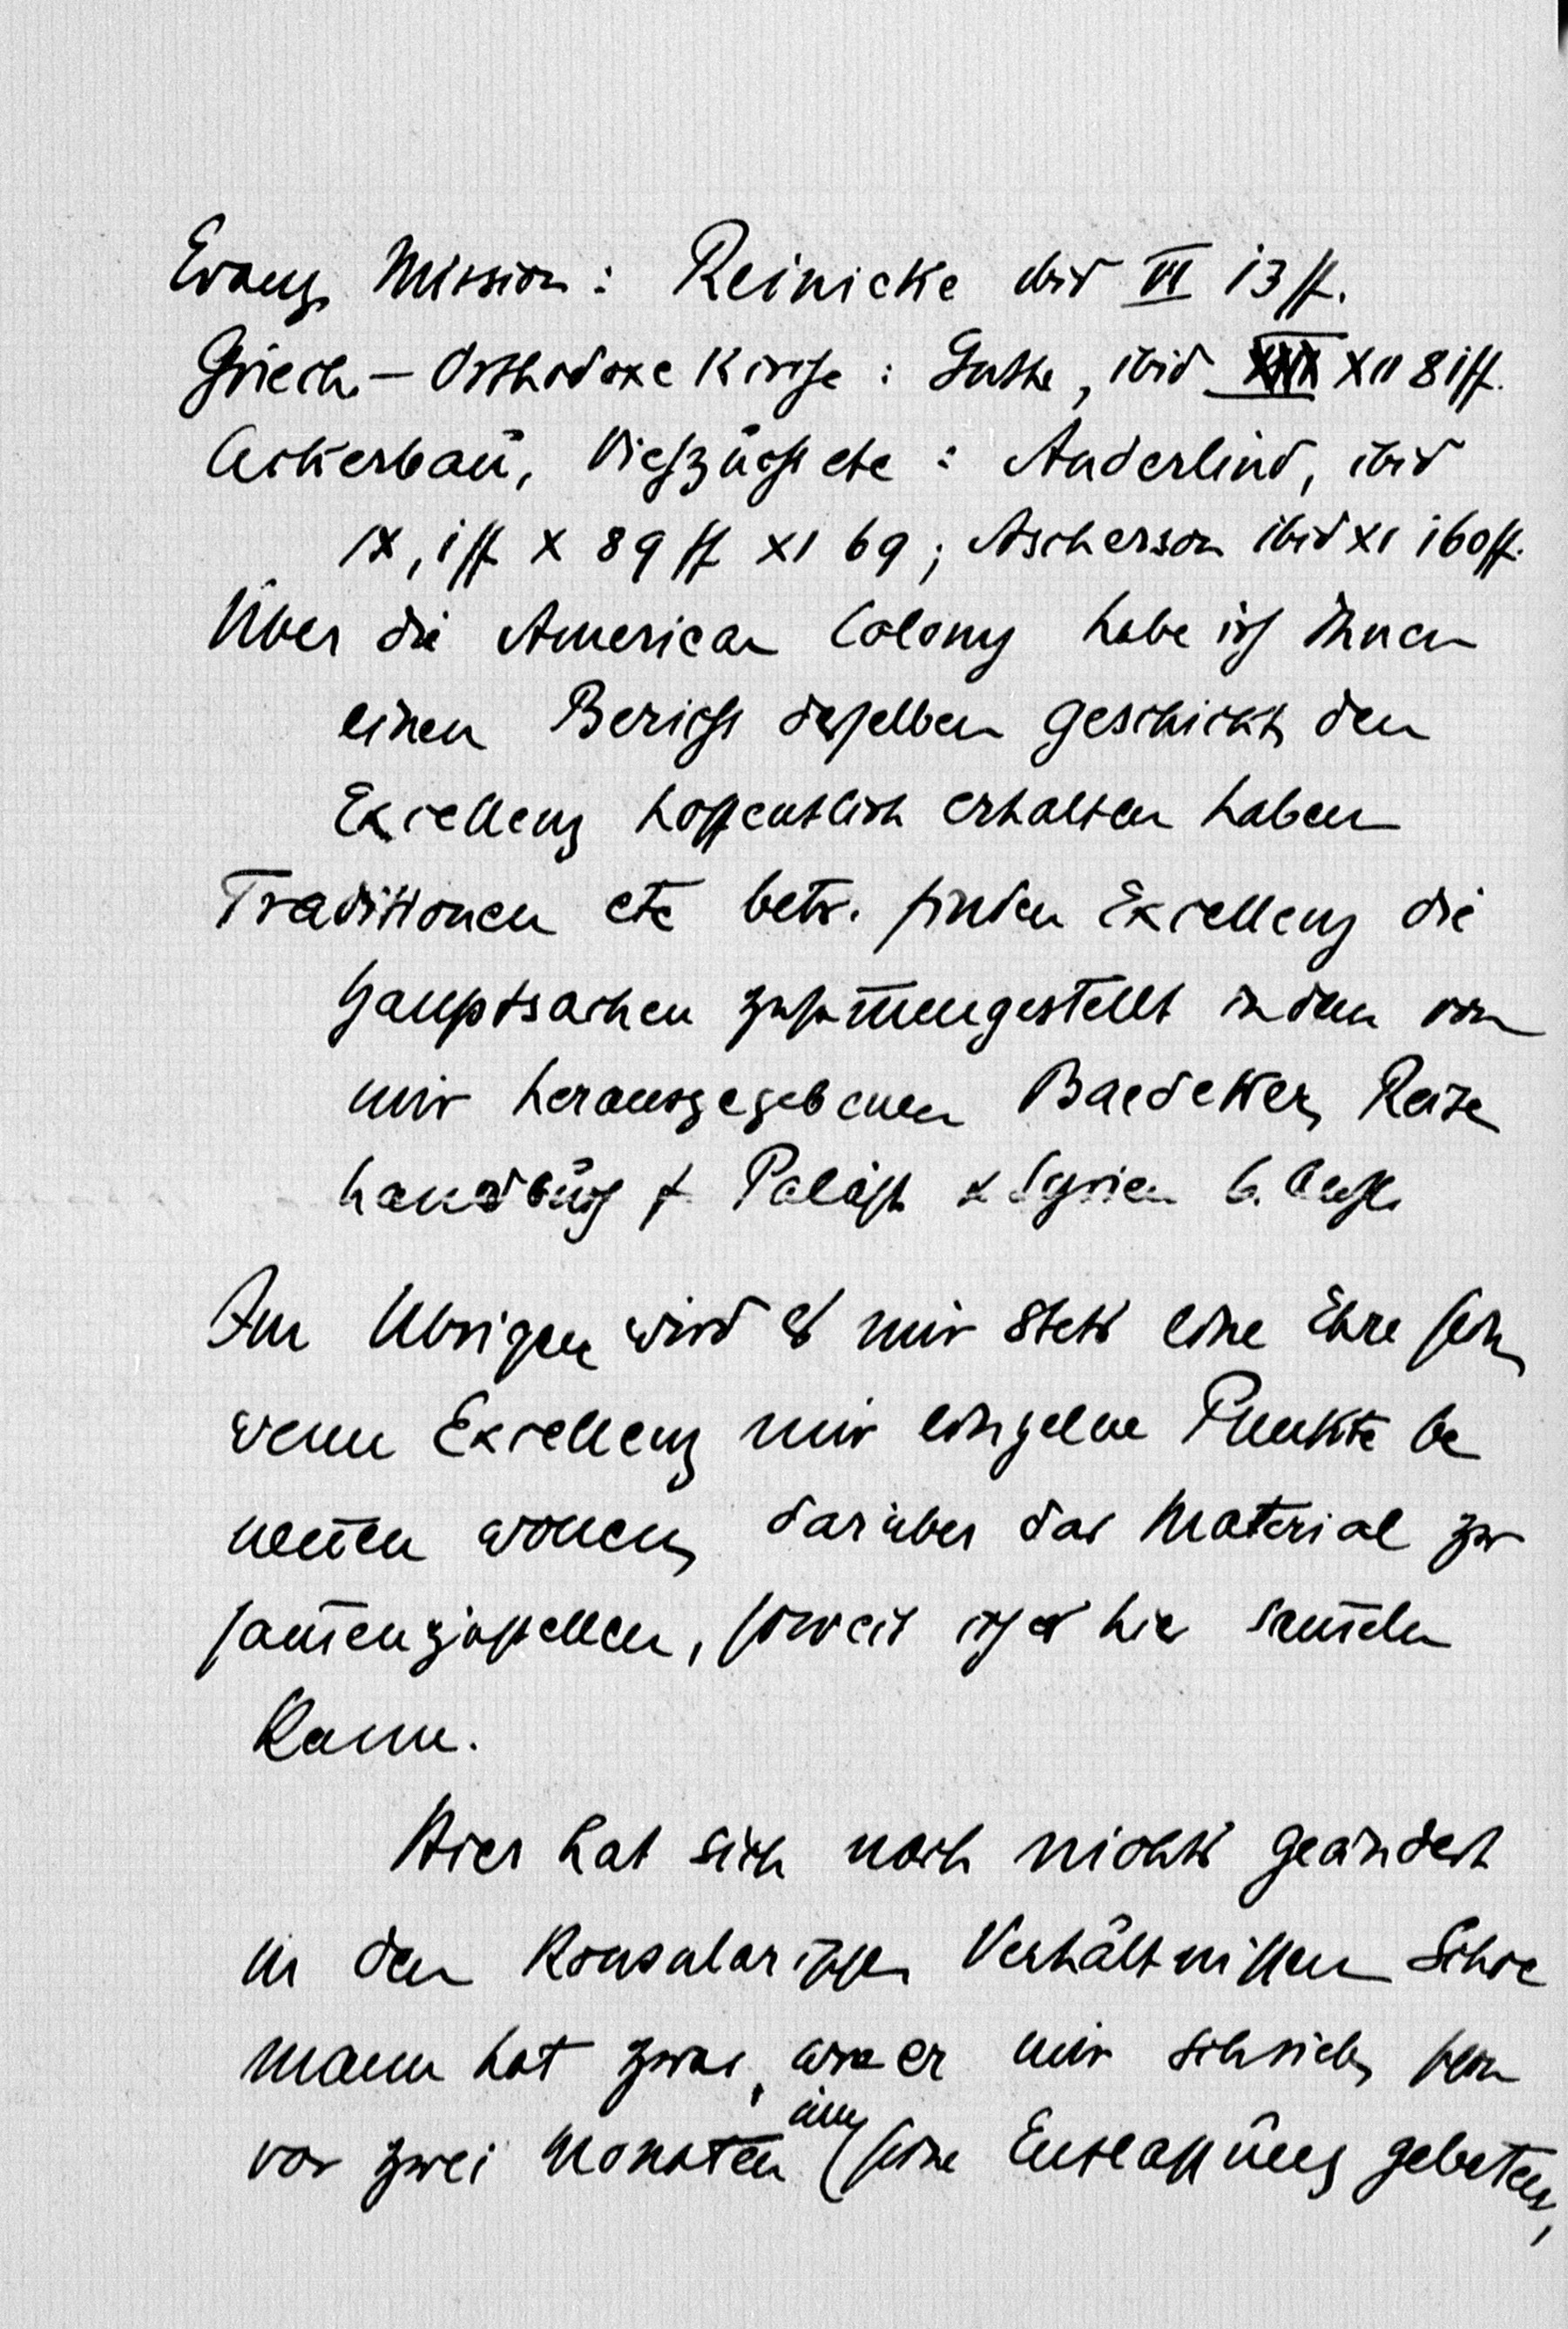 Evang. Mission: Reinicke ibid VI 13 ff.
Griech.-Orthodoxe Kirche: Guthe, ibid XII 81 ff.
Ackerbau, Viehzucht etc: Anderlind, ibid
IX, 1 ff X 89 ff XI 69; Ascherson ibid XI 160 ff.
Über die American Colony habe ich Ihnen
einen Bericht derselben geschickt, den
Excellenz hoffentlich erhalten haben
Traditionen etc betr. finden Excellenz die
Hauptsachen zusam̅engestellt in dem von
mir herausgegebenen Baedeker, Reise
handbuch f. Paläst. & Syrien 6. Aufl.
Im Übrigen wird es mir stets eine Ehre sein,
wenn Excellenz mir einzelne Punkte be
nen̅en wollen, darüber das Material zu
sam̅enzustellen, soweit ich es hier sam̅eln
kann.
Hier hat sich noch nichts geändert
in den konsularischen Verhältnissen
mann hat zwar, wie er mir schrieb, schon
vor zwei Monaten um seine Entlassung gebeten,